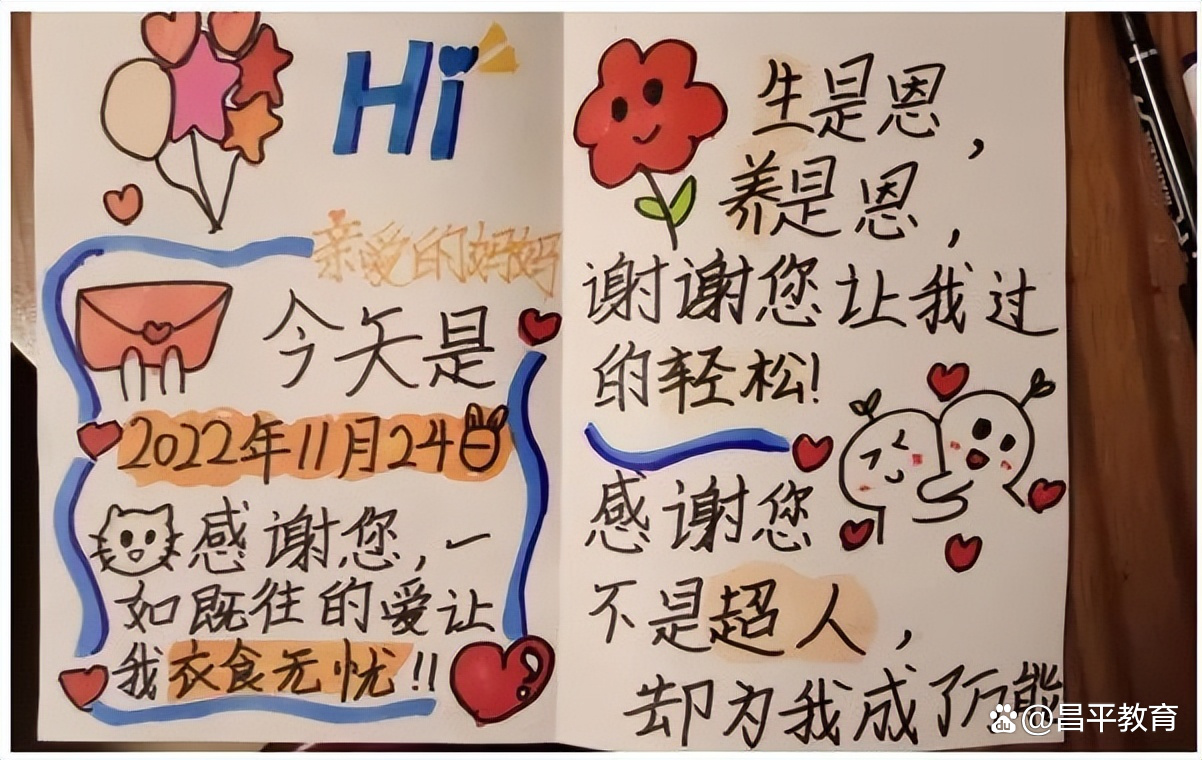 Hi
亲爱的妈妈
今天是
2022年11月24日
感谢您,一
如既往的爱让
我衣食无忧!!
生是恩,
养是恩,
谢谢您让我过
的轻松!
感谢您
不是超人,
却为我成了万能
@昌平教育